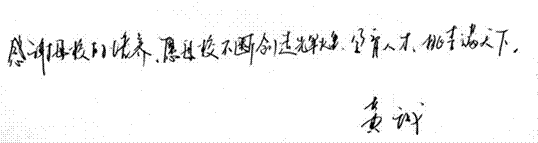 感谢母校的培养、愿母校不断创造辉煌、多育人才，桃李满天下。
黄诚